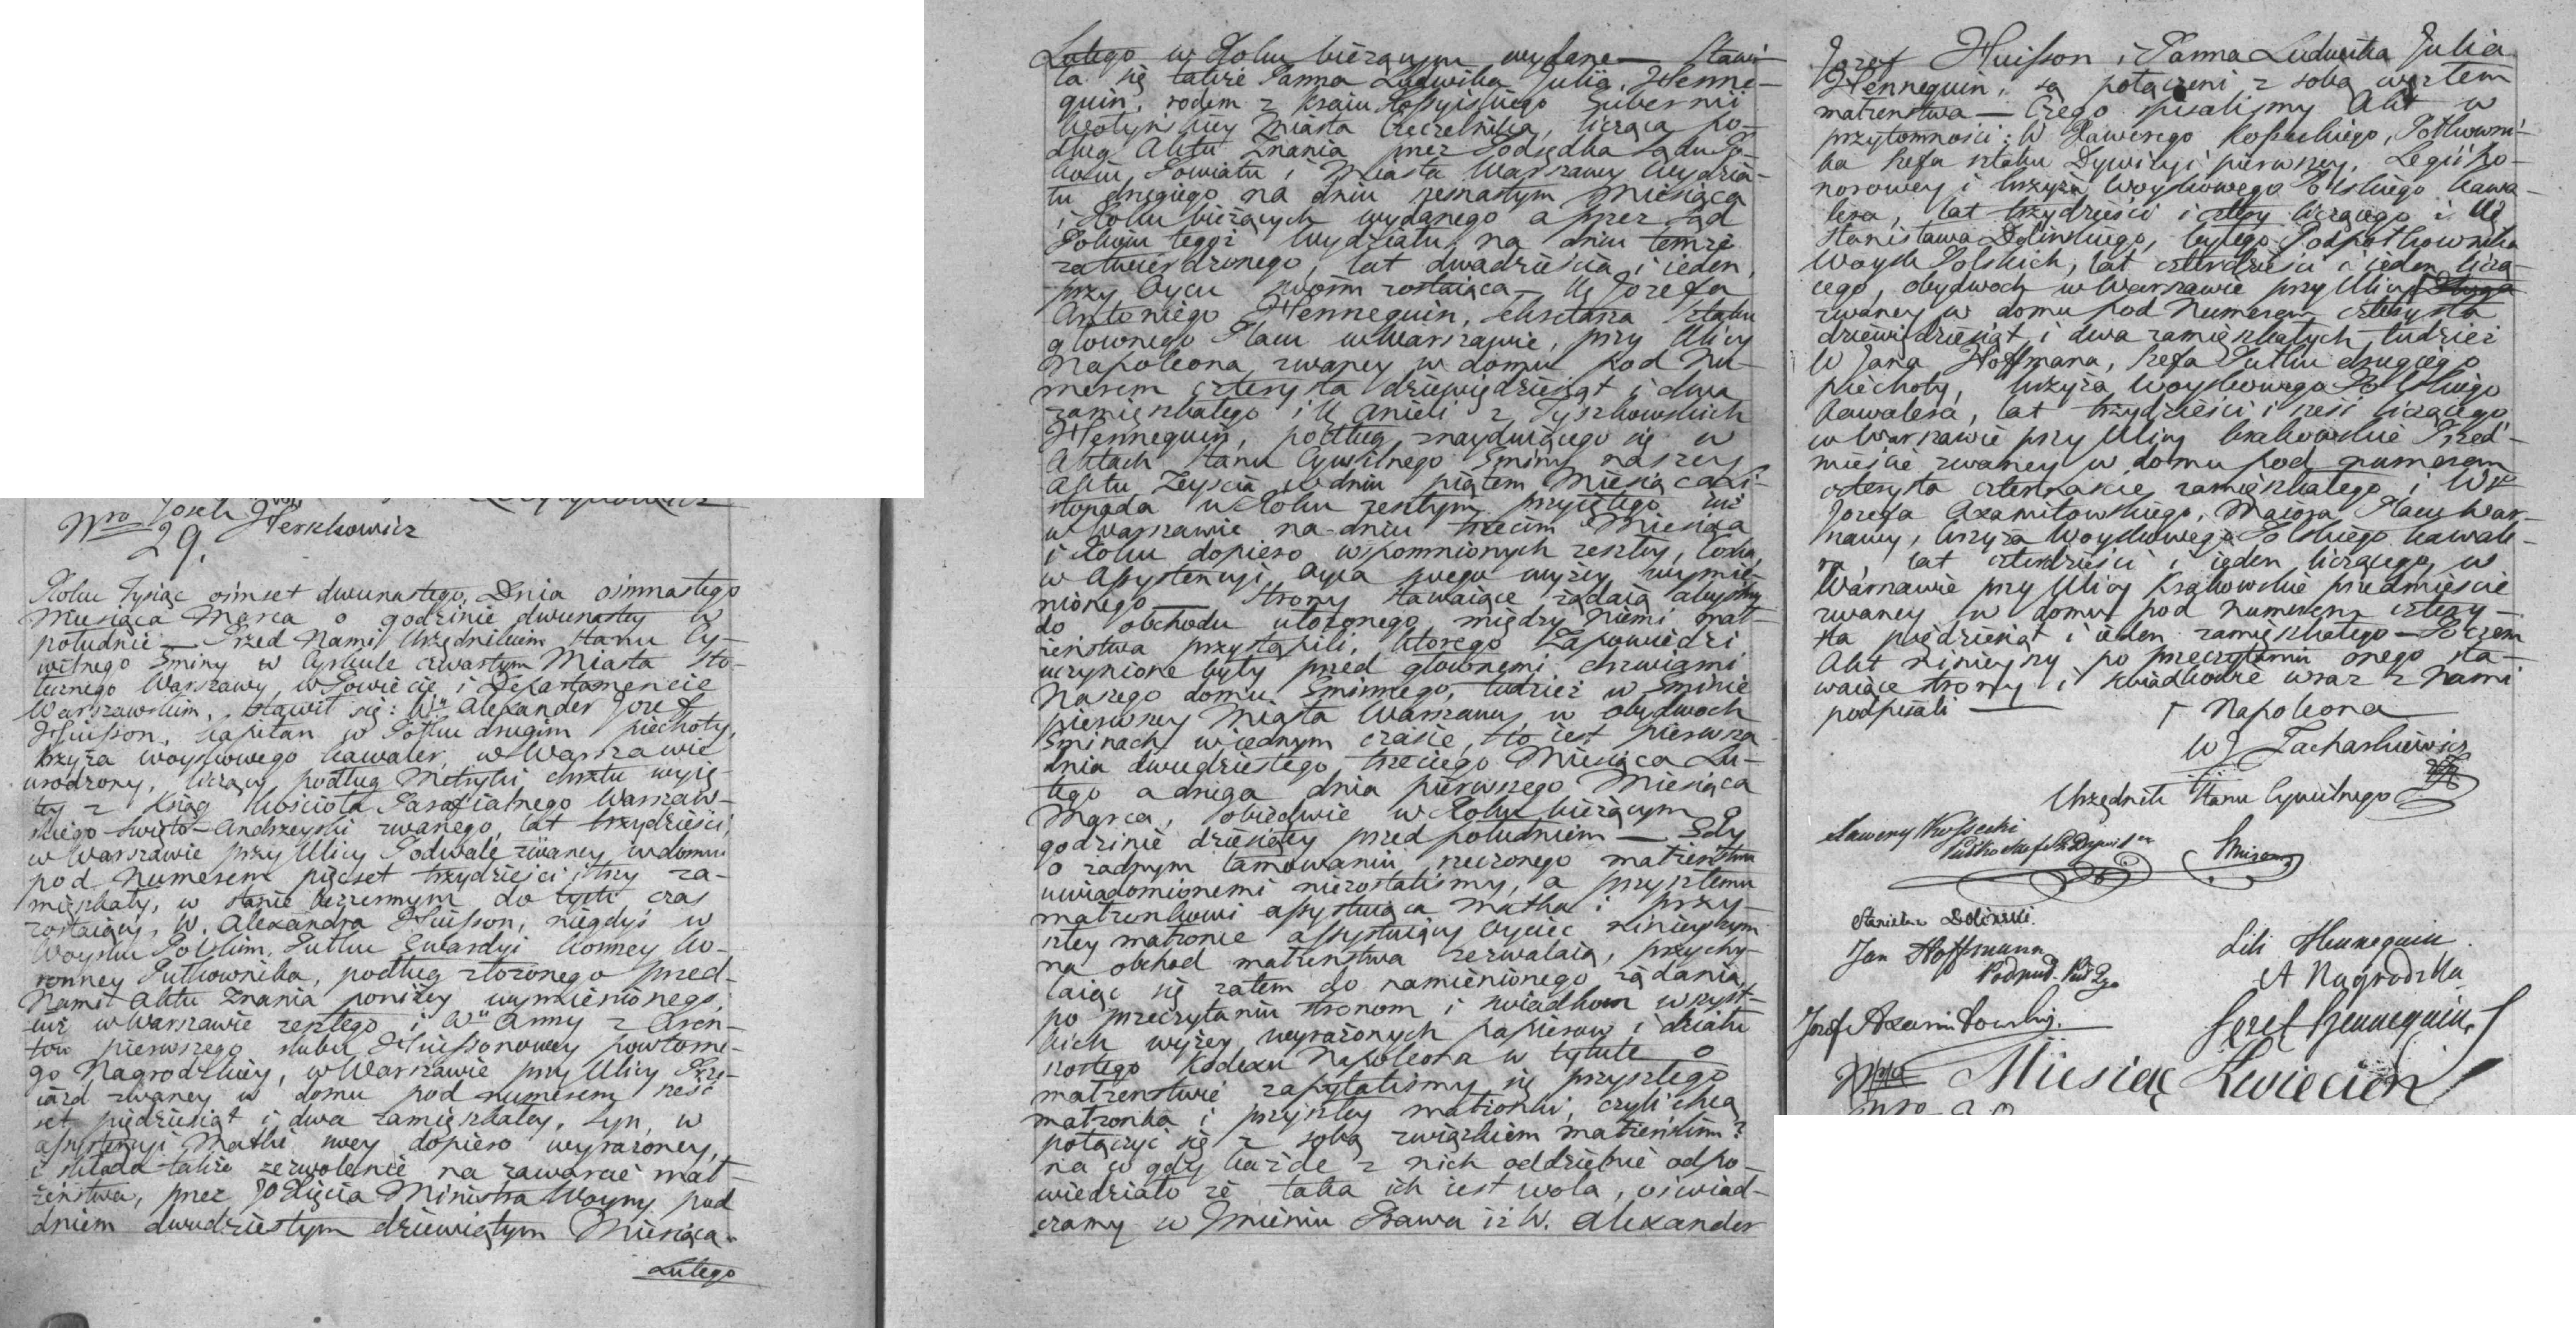 Nro Josek Herszkowicz
29.
Roku Tysiąc ośmset dwunastego, Dnia ośmnastego
Miesiąca Marca o godzinie dwunastey w
południe — Przed Nami Urzędnikiem Stanu Cy-
wilnego Gminy w Cyrkule czwartym Miasta Sto-
łecznego Warszawy, w Powiecie i Departamencie
Warszawskim, stawił się: Wny Alexander Jozef
Huisson, kapitan w Półku drugim piechoty,
krzyża woyskowego kawaler, w Warszawie
urodzony, liczący podług Metryki chrztu wyię-
tey z Ksiąg Kościoła Parafialnego Warszaw-
skiego Swięto-Andrzeyski zwanego, lat trzydzieści,
w Warszawie przy Ulicy Podwale zwaney w domu
pod Numerem pięcset trzydzieści i trzy za-
mięszkały, w stanie bezżennym do tych czas
zostaiący, W. Alexandra Huisson, niegdyś w
Woysku Polskim, Pułku Gwardyi konney ko-
ronney Pułkownika, podług złożonego przed
Nami Aktu Znania poniżey wymienionego,
iuż w Warszawie zeszłego i Wny Anny z Aren-
tow pierwszego slubu Huissonowey powtorne-
go Nagrodzkiey, w Warszawie przy Ulicy Prze-
iazd zwaney w domu pod numerem sześć
set pięćdziesiąt i dwa zamięszkałey, syn, w
assystencyi Matki swey dopiero wyrażoney,
i składa także zezwolenie na zawarcie mał-
żeństwa, przez JO Xięcia Ministra Woyny pod
dniem dwudziestym dziewiątym Miesiąca
Lutego
Lutego w Roku bieżącym wydane — Stawi-
ła się także Panna Ludwika Julia Henne-
quin, rodem z kraiu Rossyiskiego Gubernii
Wołyńskiey Miasta Czeczelnika, licząca po-
dług Aktu Znania przez Podsędka Sądu Po-
koiu Powiatu i Miasta Warszawy Wydzia-
łu drugiego na dniu szesnastym Miesiąca
i Roku bieżących wydanego a przez Sąd
Pokoiu tegoż Wydziału na dniu temże
zatwierdzonego, lat dwadzieścia i ieden,
przy Oycu swoim zostaiąca — W Jozefa
Antoniego Hennequin, Sekretarza sztabu
głownego Placu w Warszawie, przy Ulicy
Napoleona zwaney w domu pod Nu-
merem czterysta dziewięćdziesiąt i dwa
zamięszkałego i W Anieli z Tyszkowskich
Hennequin, podług znayduiącego się w
Aktach stanu Cywilnego Gminy naszey
Aktu Zeyścia w dniu piątem Miesiąca Li-
stopada w Roku zeszłym przyiętego iuż
w Warszawie na dniu trzecim Miesiąca
i Roku dopiero wspomnionych zeszłey, Corka
w Assystencyi Oyca swego wyżey wymie-
nionego — Strony stawaiące żądaią abyśmy
do obchodu ułożonego między Niemi mał-
żeństwa przystąpili, ktorego Zapowiedzi
uczynione były przed głownemi drzwiami
Naszego domu Gminnego, tudzież w Gminie
pierwszey Miasta Warszawy w obydwoch
Gminach w iednym czasie, to iest pierwsza
dnia dwudziestego trzeciego Miesiąca Lu-
tego a druga dnia pierwszego Miesiąca
Marca, obiedwie w Roku bieżącym o
godzinie dziesiątey przed południem — Gdy
o żadnym tamowaniu rzeczonego małżeństwa
uwiadomionemi niezostaliśmy, a przyszłemu
małżonkowi assystuiąca matka i przy-
szłey małżonce assystuiący Oyciec ninieyszym
na obchod małżeństwa zezwalaią, przychy-
laiąc się zatem do namienionego żądania,
po przeczytaniu stronom i swiadkom wszyst-
kich wyżey wyrażonych papierow i działu
szostego Kodexu Napoleona w tytule o
małżenstwie zapytaliśmy się przyszłego
małżonka i przyszłey małżonki, czyli chcą
połączyć się z sobą związkiem małżeńskim?
na co gdy każde z nich oddzielnie odpo-
wiedziało że taka ich iest wola, oświad-
czamy w Imieniu Prawa iż W. Alexander
Jozef Huisson i Panna Ludwika Julia
Hennequin, są połączeni z sobą węzłem
małżeństwa — Czego spisaliśmy Akt w
przytomności: W Xawerego Kosseckiego, Półkowni-
ka Szefa sztabu Dywizyi pierwszey, Legii ho-
norowey i krzyża Woyskowego Polskiego kawa-
lera, lat trzydzieści i cztery liczącego i W
Stanisława Dolińskiego, byłego Podpółkownika
Woysk Polskich, lat czterdzieści i ieden liczą-
cego, obydwoch w Warszawie przy Ulicy Długa
zwaney w domu pod Numerem czterysta
dziewięćdziesiąt i dwa zamięszkałych tudzież
W Jana Hoffmana, Szefa Pułku drugiego
piechoty, krzyża Woyskowego Polskiego
kawalera, lat trzydzieści i sześć liczącego
w Warszawie przy Ulicy krakowskie Przed-
mieście zwaney w domu pod numerem
czterysta czternaście zamięszkałego i W
Jozefa Axamitowskiego, Maiora Placu War-
szawy, krzyża Woyskowego Polskiego kawale-
ra, lat czterdzieści i ieden liczącego, w
Warszawie przy Ulicy Krakowskie przedmieście
zwaney w domu pod numerem cztery-
sta pięćdziesiąt i ieden zamięszkałego — Poczem
Akt ninieyszy po przeczytaniu onego sta-
waiące strony i swiadkowie wraz z Nami
podpisali — Napoleona
W J Zachaskiewicz
Urzędnik Stanu Cywilnego
Xawery Kossecki
Huisson
Stanisław Doliński
Jan Hoffmann
Lili Hennequin
A Nagrodzka
Jozef Axamitowski
Jozef Hennequin
Miesiąc Kwiecień